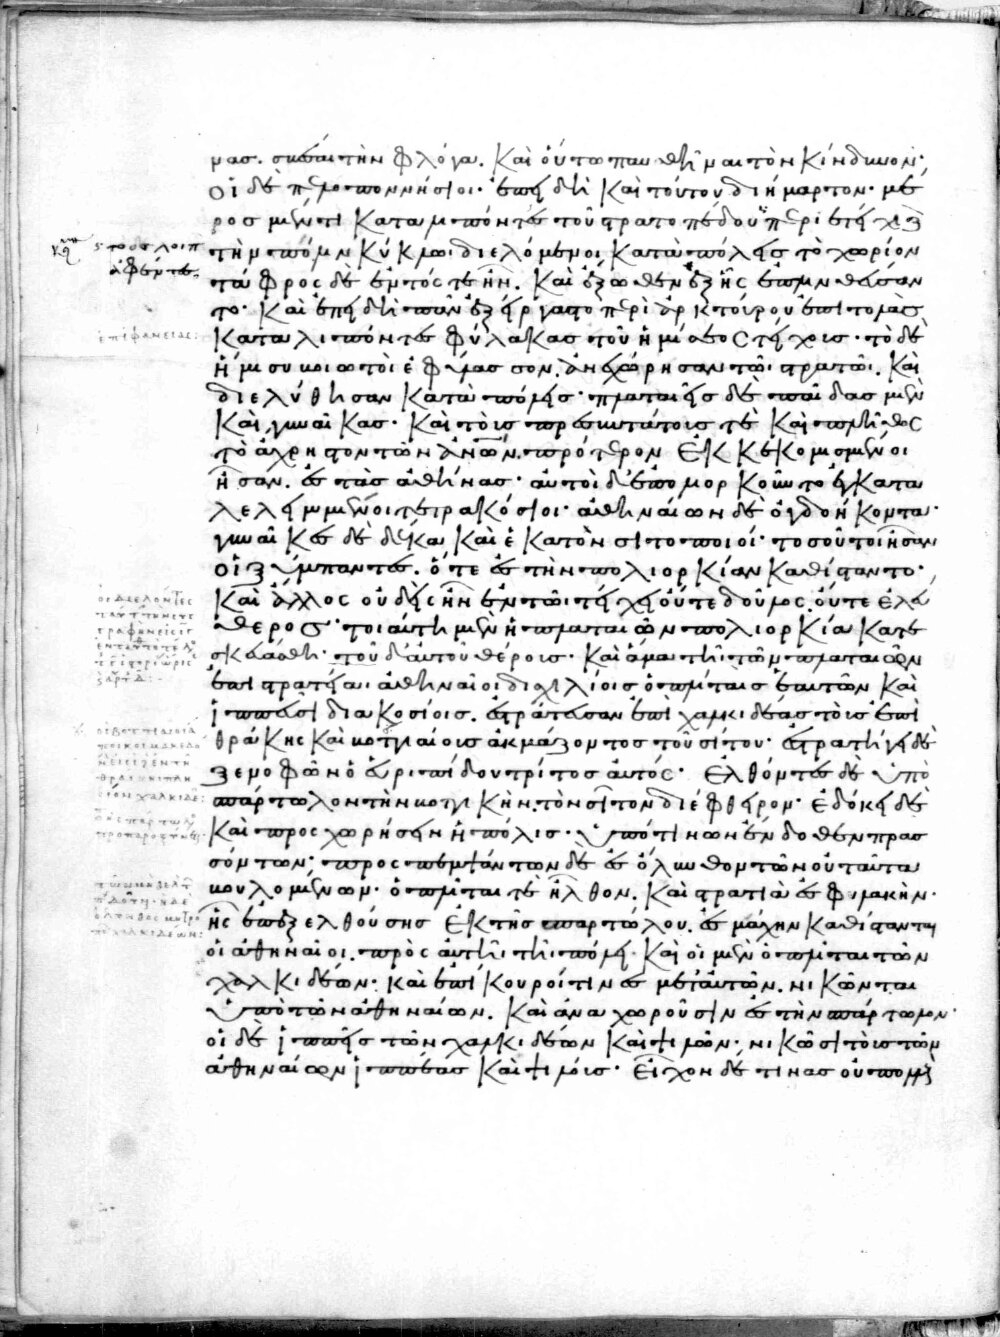 μασ. σβέσαι τὴν φλόγα. Καὶ οὕτω παυσθῆναι τὸν Κίνδυνον·
Οἱ δὲ πελοποννήσιοι· ἐπειδὴ Καὶ τούτου διήμαρτον· μέ
ρος μέν τι Καταλιπόντες τοῦ στρατοπέδου· περιετείχιζ
τὴν πόλιν Κύκλωι διελόμενοι Κατὰ πόλεις τὸ χωρίον
τάφρος δὲ ἐντός τε ἦν. Καὶ ἔξωθεν ἐξ ἧς ἐπλινθεύσαν
το· Καὶ ἐπειδὴ πᾶν ἐξείργαστο περὶ ἀρκτούρου ἐπιτολὰς
ἐπιφανείας:
Καταλιπόντες φύλακας τοῦ ἡμίσεος τείχους· τὸ δὲ
ἥμισυ βοιωτοὶ ἐφύλασσον. ἀνεχώρησαν τῶι στρατῶι. Καὶ
διελύθησαν Κατὰ πόλεις· πλαταιῆς δὲ παῖδας μὲν
Καὶ γυναῖκας· Καὶ τοὺς πρεσβυτάτους τὲ Καὶ πλῆθος
τὸ ἀχρηστον τῶν ἀνων. πρότερον ἐΚΚεΚομισμένοι
ἦσαν. ἐς τὰς ἀθήνας· αὐτοὶ δ' ἐπολιορΚοῦντο ἐγΚατα
λελειμμένοι τετραΚόσιοι· ἀθηναίων δὲ ὀγδοήΚοντα·
γυναῖΚες δὲ δέΚα Καὶ ἑΚατὸν σιτοποιοί· τοσοῦτοι ἦσαν
οἱ ξύμπαντες. ὅτε ἐς τὴν πολιορΚίαν Καθίσταντο·
Καὶ ἄλλος οὐδεὶς ἦν ἐν τῶι τείχει οὔτε δοῦλος. οὔτε ἐλεύ
θερος· τοιαύτη μὲν ἡ πλαταιῶν πολιορΚία Κατε
σΚευάσθη· τοῦ δ' αὐτοῦ θέρους· Καὶ ἅμα τῆι τῶν πλαταιῶν
ἐπιστρατείαι· ἀθηναῖοι δισχιλίοις ὁπλίταις ἑαυτῶν Καὶ
ἱππεῦσι διαΚοσίοις. ἐστράτευσαν ἐπὶ χαλΚιδέας τοὺς ἐπὶ
θράΚης Καὶ βοττιαίους ἀΚμάζοντος τοῦ σίτου· ἐστρατήγει δὲ
ξενοφῶν ὁ εὐριπίδου τρίτος αὐτός· ἐλθόντες δὲ ὑπὸ
σπάρτωλον τὴν βοττιΚὴν. τὸν σῖτον διέφθειρον· ἐδόΚει δὲ
Καὶ προσχωρήσειν ἡ πόλις· ὑπό τινων ἔνδοθεν πρασ
σόντων· προσπεμψάντων δὲ ἐς ὄλυνθον τῶν οὐ ταῦτα
βουλομένων· ὁπλῖται τὲ ἦλθον. Καὶ στρατιὰ ἐς φυλαΚὴν·
ἧς ἐπεξελθούσης ἐΚ τῆς σπαρτώλου. ἐς μάχην Καθίστανται
οἱ ἀθηναῖοι. πρὸς αὐτῆι τῆι πόλει· Καὶ οἱ μὲν ὁπλῖται τῶν
χαλΚιδέων· Καὶ ἐπίΚουροί τινες μετ' αὐτῶν. νιΚῶνται
ὑπὸ τῶν ἀθηναίων. Καὶ ἀναχωροῦσιν ἐς τὴν σπάρτωλον·
οἱ δὲ ἱππῆς τῶν χαλΚιδέων Καὶ ψιλοὶ· νιΚῶσι τοὺς τῶν
ἀθηναίων ἱππέας Καὶ ψιλούς· εἶχον δέ τινας οὐ πολλ